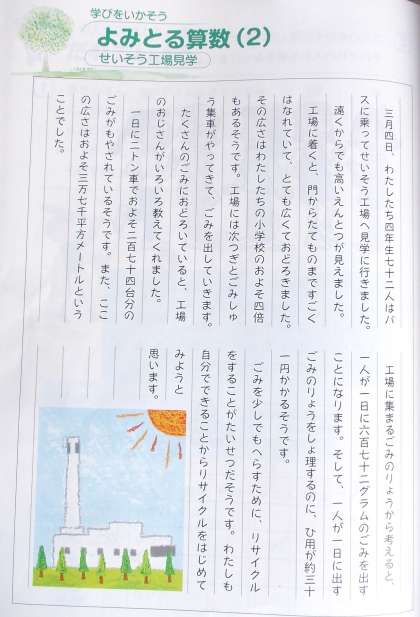 学びをいかそう
よみとる算数(2)
せいそう工場見学
三月四日、わたしたち四年生七十二人はバ
スに乗ってせいそう工場へ見学に行きました。
遠くからでも高いえんとつが見えました。
工場に着くと、門からたてものまですごく
はなれていて、とても広くておどろきました。
その広さはわたしたちの小学校のおよそ四倍
もあるそうです。工場には次つぎとごみしゅ
う集車がやってきて、ごみを出していきます。
たくさんのごみにおどろいていると、工場
のおじさんがいろいろ教えてくれました。
一日に二トン車でおよそ二百七十四台分の
ごみがもやされているそうです。また、ここ
の広さはおよそ三万七千平方メートルという
ことでした。
工場に集まるごみのりょうから考えると、
一人が一日に六百七十二グラムのごみを出す
ことになります。そして、一人が一日に出す
ごみのりょうをしょ理するのに、ひ用が約三十
一円かかるそうです。
ごみを少しでもへらすために、リサイクル
をすることがたいせつだそうです。わたしも
自分でできることからリサイクルをはじめて
みようと
思います。